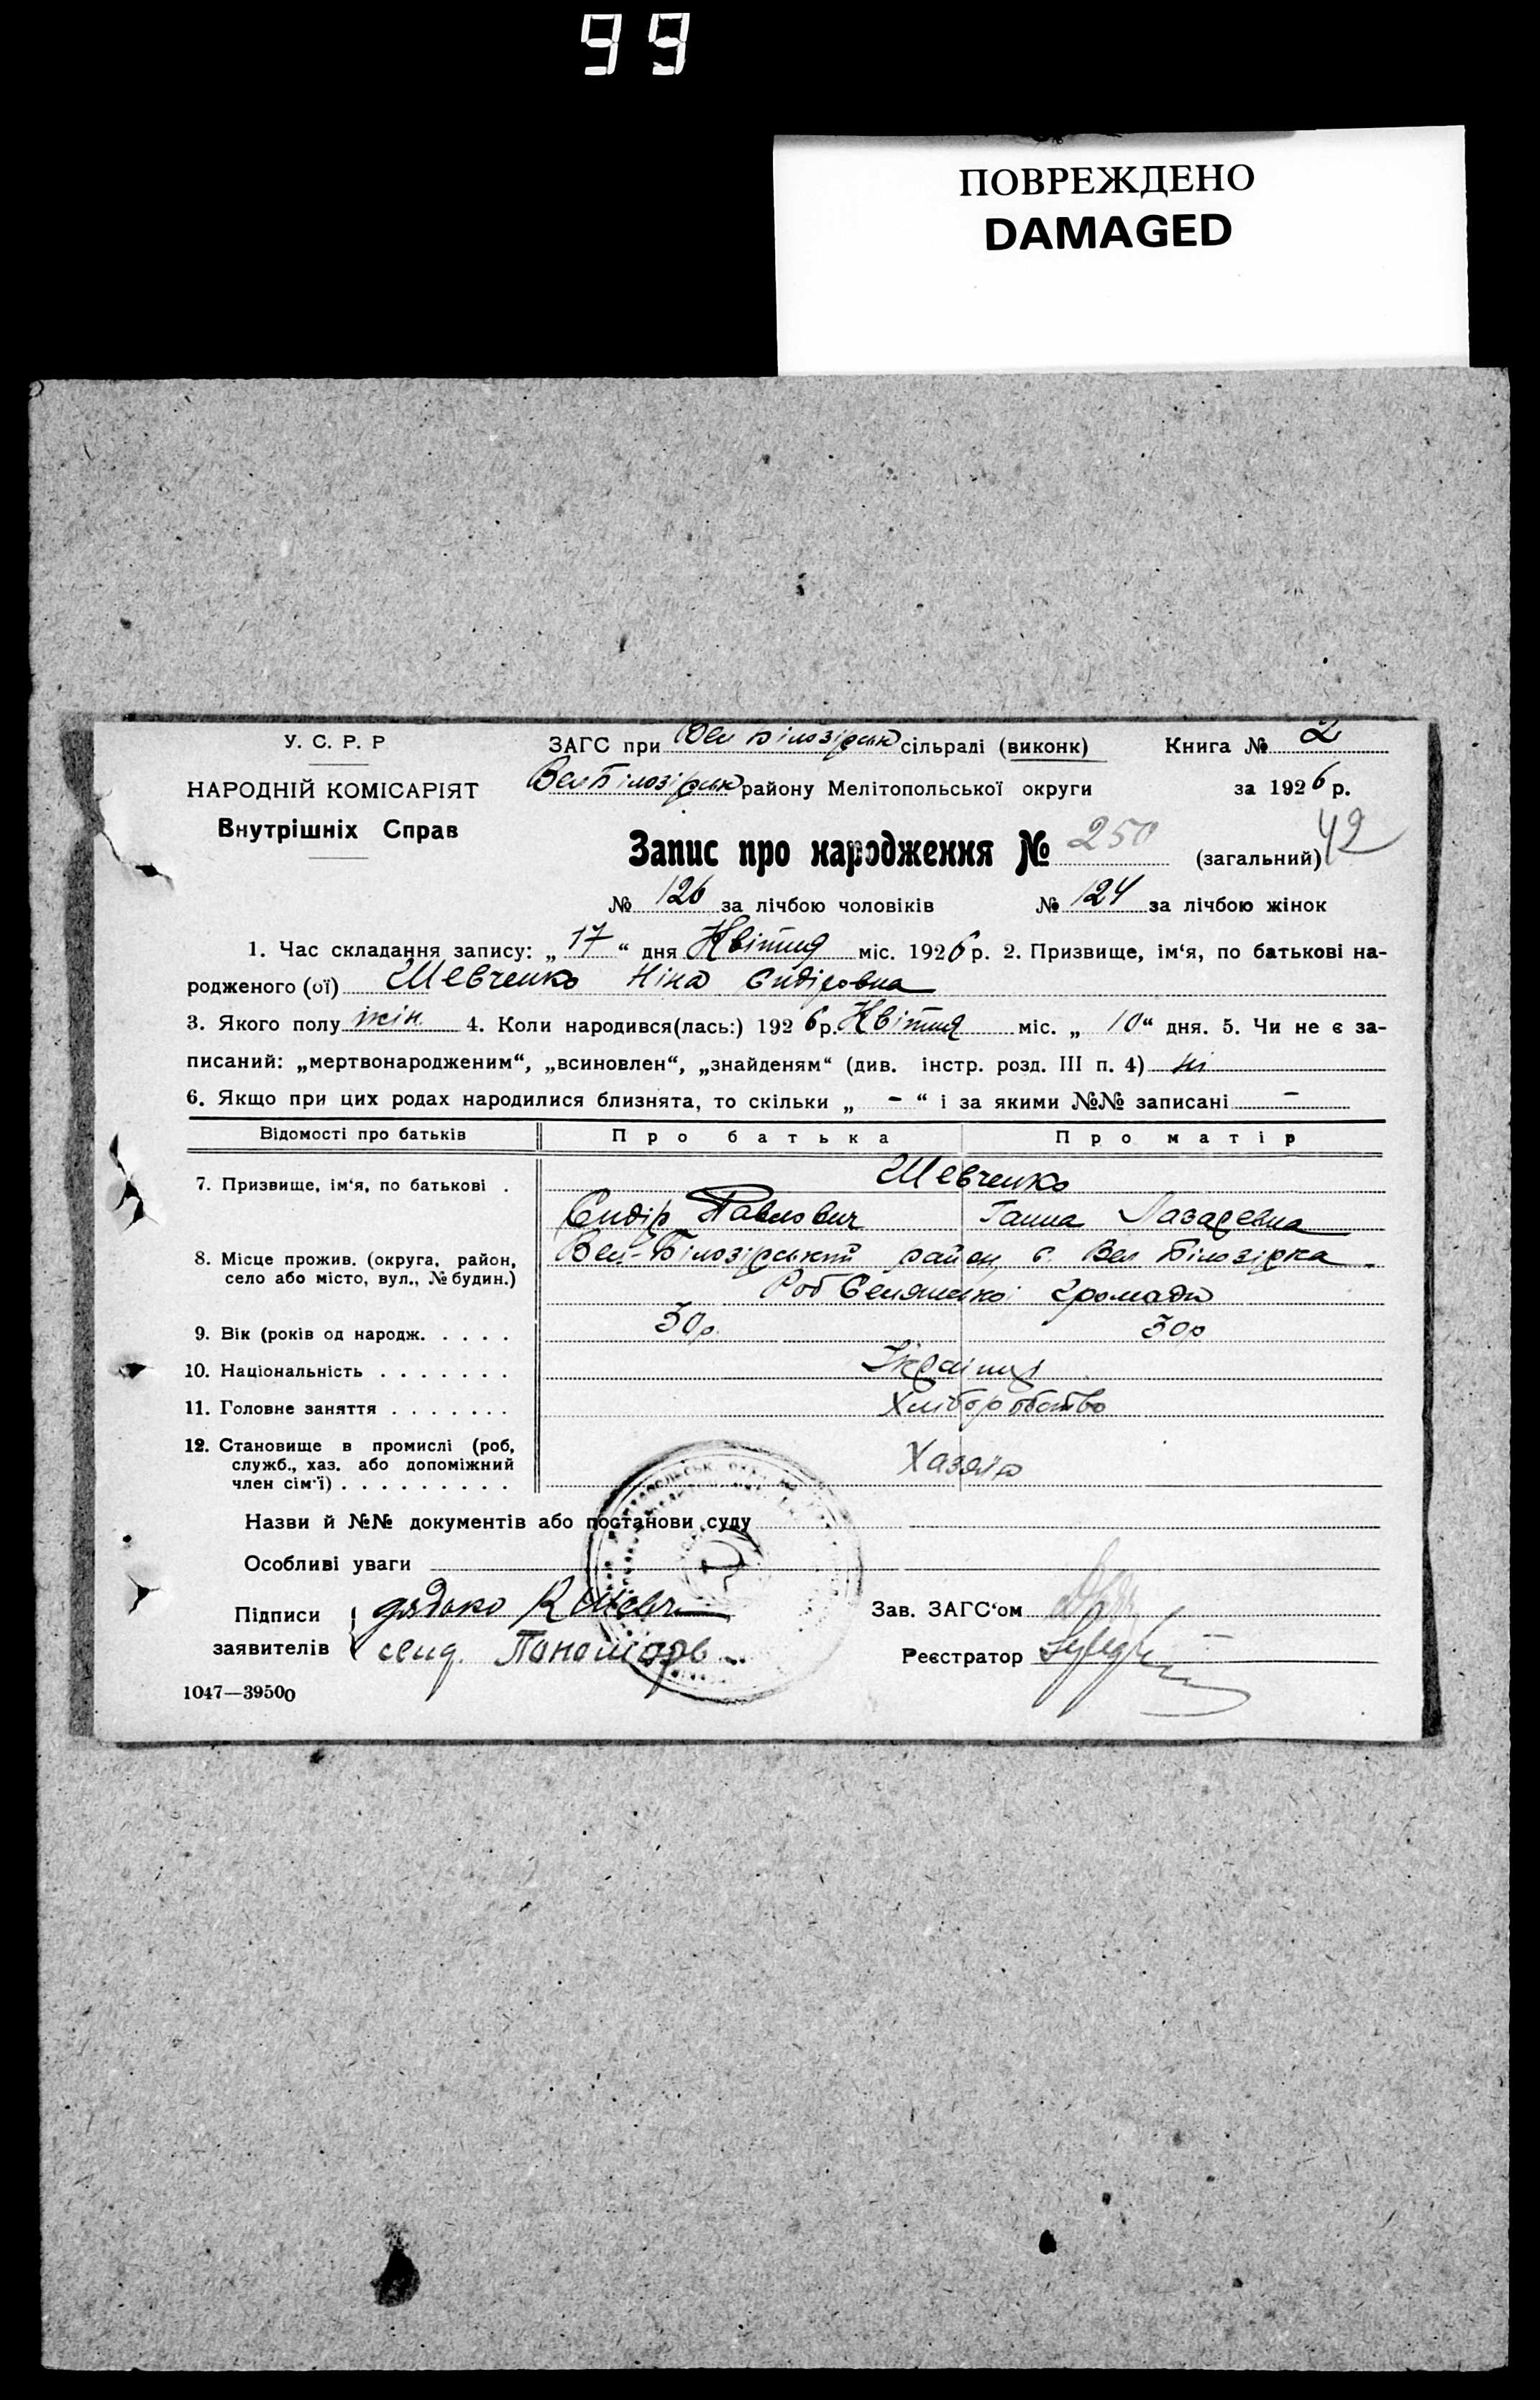 99
ПОВРЕЖДЕНО
DAMAGED
У. С. Р. Р
ЗАГС при Вел Білозірськ сільраді (виконк) Книга № 2
НАРОДНІЙ КОМІСАРІЯТ
Вел Білозірськ району Мелітопольської округи за 1926 р.
Внутрішніх Справ
Запис про народження № 250 (загальний) 42
№ 126 за лічбою чоловіків № 124 за лічбою жінок
1. Час складання запису: „17“ дня Квітня міс. 1926 р. 2. Призвище, ім‘я, по батькові на-
родженого (ої) Шевченко Ніна Сидіровна
3. Якого полу жін. 4. Коли народився(лась:) 1926 р. Квітня міс. „10“ дня. 5. Чи не є за-
писаний: „мертвонародженим“, „всиновлен“, „знайденям“ (див. інстр. розд. III п. 4) ні
6. Якщо при цих родах народилися близнята, то скільки „ - “ і за якими №№ записані -
Відомості про батьків Про батька Про матір
7. Призвище, ім‘я, по батькові . Шевченко
Сидір Павлович Ганна Лазаревна
8. Місце прожив. (округа, район, Вел-Білозірський район, с. Вел Білозірка
село або місто, вул., № будин.) Роб Селянської громади
9. Вік (років од народж. . . . . 30р. 30р
10. Національність . . . . . . . Українці
11. Головне заняття . . . . . . . Хліборобство
12. Становище в промислі (роб, служб., хаз. або допоміжний член сім‘ї) . . . . . . . . . Хазяїн
Назви й №№ документів або постанови суду
Особливі уваги
Підписи дядько Шевч
Зав. ЗАГС‘ом
заявителів Пономарь
Реєстратор
1047—39500